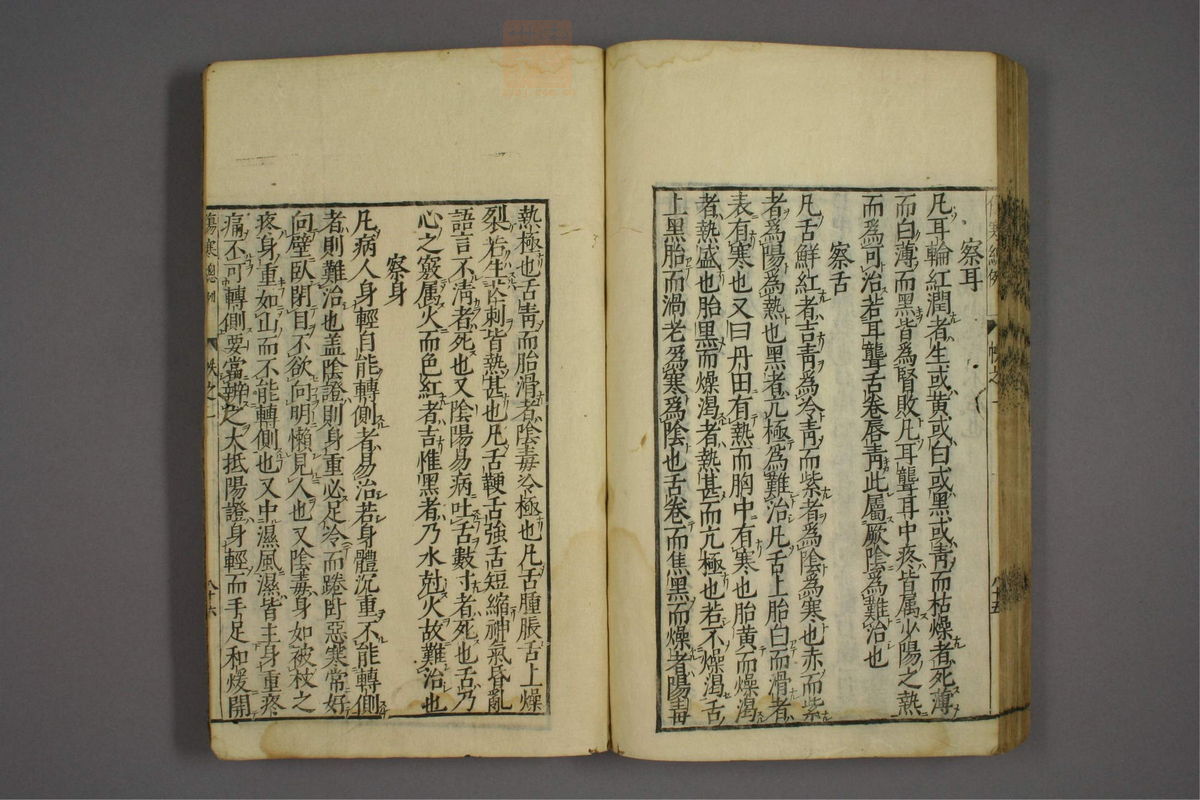 察耳
凡耳輪紅潤者生或黃或白或黑或青而枯燥者死薄
而白薄而黑皆為腎敗凡耳聾耳中疼皆属少陽之熱
而為可治若耳聾舌卷唇青此屬厥陰為難治也
察舌
凡舌鮮紅者吉青為冷青而紫者為陰為寒也赤而紫
者為陽為熱也黑者亢極為難治凡舌上胎白而滑者
表有寒也又曰丹田有熱而胸中有寒也胎黃而燥渴
者熱盛也胎黑而燥渴者熱甚而亢極也若不燥渴舌
上黑胎而滑者為寒為陰也舌卷而焦黑而燥者陽毒
熱極也舌青而胎滑者陰毒冷極也凡舌腫脹舌上燥
裂若生芒刺皆熱甚也凡舌鞕舌強舌短縮神氣昏亂
語言不清者死也又陰陽易病吐舌數寸者死也舌乃
心之竅属火而色紅者吉惟黑者乃水尅火故難治也
察身
凡病人身輕自能轉側者易治若身體沉重不能轉側
者則難治也盖陰證則身重必足冷而踡臥惡寒常好
向壁臥閉目不欲向明懶見人也又陰毒身如被杖之
疼身重如山而不能轉側也又中濕風濕皆主身重疼
痛不可轉側要當辨之大抵陽證身輕而手足和煖開
傷寒總例
帙之一
八十六